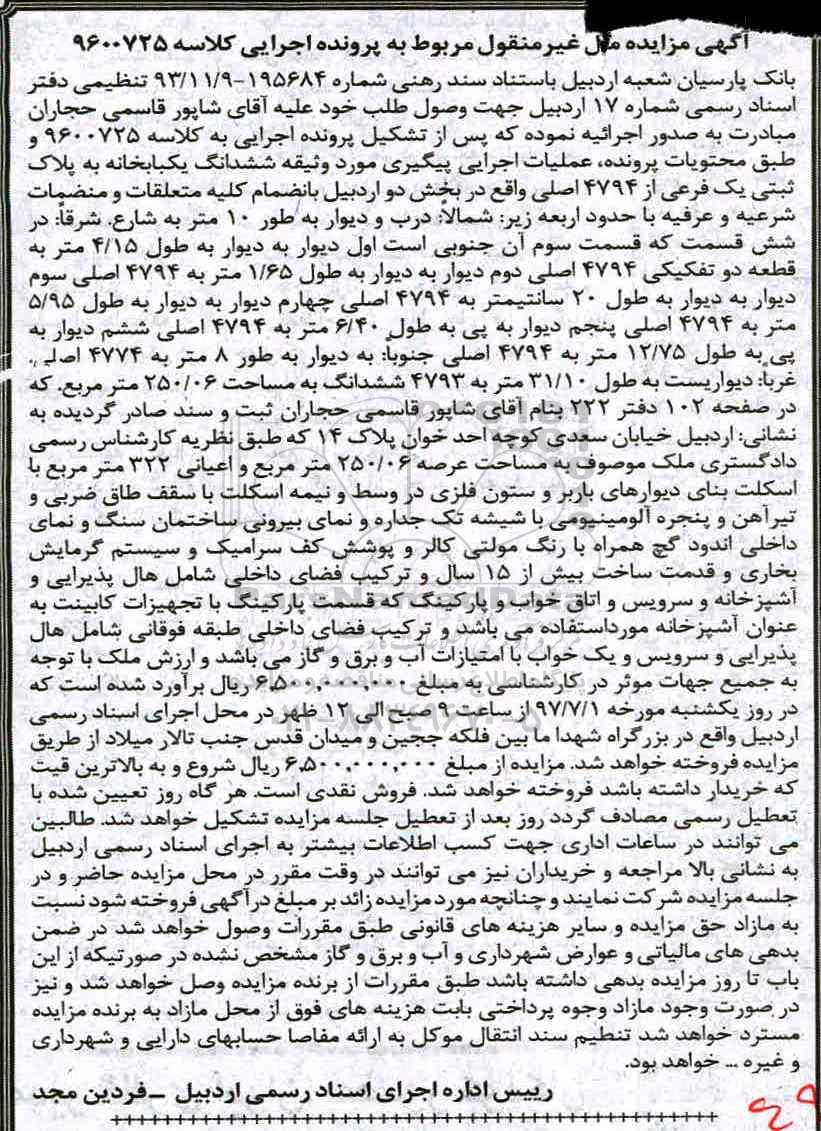 آگهی مزایده مال غیرمنقول مربوط به پرونده اجرایی کلاسه ۹۶۰۰۷۲۵
بانک پارسیان شعبه اردبیل باستناد سند رهنی شماره ۱۹۵۶۸۴-۹۳/۱۱/۹ تنظیمی دفتر
اسناد رسمی شماره ۱۷ اردبیل جهت وصول طلب خود علیه آقای شاپور قاسمی حجاران
مبادرت به صدور اجرائیه نموده که پس از تشکیل پرونده اجرایی به کلاسه ۹۶۰۰۷۲۵ و
طبق محتویات پرونده، عملیات اجرایی پیگیری مورد وثیقه ششدانگ یکبابخانه به پلاک
ثبتی یک فرعی از ۴۷۹۴ اصلی واقع در بخش دو اردبیل بانضمام کلیه متعلقات و منضمات
شرعیه و عرفیه با حدود اربعه زیر: شمالاً: درب و دیوار به طور ۱۰ متر به شارع. شرقاً: در
شش قسمت که قسمت سوم آن جنوبی است اول دیوار به دیوار به طول ۴/۱۵ متر به
قطعه دو تفکیکی ۴۷۹۴ اصلی دوم دیوار به دیوار به طول ۱/۶۵ متر به ۴۷۹۴ اصلی سوم
دیوار به دیوار به طول ۲۰ سانتیمتر به ۴۷۹۴ اصلی چهارم دیوار به دیوار به طول ۵/۹۵
متر به ۴۷۹۴ اصلی پنجم دیوار به پی به طول ۶/۴۰ متر به ۴۷۹۴ اصلی ششم دیوار به
پی به طول ۱۲/۷۵ متر به ۴۷۹۴ اصلی جنوباً: به دیوار به طور ۸ متر به ۴۷۷۴ اصلی.
غرباً: دیواریست به طول ۳۱/۱۰ متر به ۴۷۹۳ ششدانگ به مساحت ۲۵۰/۰۶ متر مربع. که
در صفحه ۱۰۲ دفتر ۲۲۲ بنام آقای شاپور قاسمی حجاران ثبت و سند صادر گردیده به
نشانی: اردبیل خیابان سعدی کوچه احد خوان پلاک ۱۴ که طبق نظریه کارشناس رسمی
دادگستری ملک موصوف به مساحت عرصه ۲۵۰/۰۶ متر مربع و اعیانی ۳۲۲ متر مربع با
اسکلت بنای دیوارهای باربر و ستون فلزی در وسط و نیمه اسکلت با سقف طاق ضربی و
تیرآهن و پنجره آلومینیومی با شیشه تک جداره و نمای بیرونی ساختمان سنگ و نمای
داخلی اندود گچ همراه با رنگ مولتی کالر و پوشش کف سرامیک و سیستم گرمایش
بخاری و قدمت ساخت بیش از ۱۵ سال و ترکیب فضای داخلی شامل هال پذیرایی و
آشپزخانه و سرویس و اتاق خواب و پارکینگ که قسمت پارکینگ با تجهیزات کابینت به
عنوان آشپزخانه مورداستفاده می باشد و ترکیب فضای داخلی طبقه فوقانی شامل هال
پذیرایی و سرویس و یک خواب با امتیازات آب و برق و گاز می باشد و ارزش ملک با توجه
به جمیع جهات موثر در کارشناسی به مبلغ ۶،۵۰۰،۰۰۰،۰۰۰ ریال برآورد شده است که
در روز یکشنبه مورخه ۹۷/۷/۱ از ساعت ۹ صبح الی ۱۲ ظهر در محل اجرای اسناد رسمی
اردبیل واقع در بزرگراه شهدا ما بین فلکه ججین و میدان قدس جنب تالار میلاد از طریق
مزایده فروخته خواهد شد. مزایده از مبلغ ۶،۵۰۰،۰۰۰،۰۰۰ ریال شروع و به بالاترین قیت
که خریدار داشته باشد فروخته خواهد شد. فروش نقدی است. هر گاه روز تعیین شده با
تعطیل رسمی مصادف گردد روز بعد از تعطیل جلسه مزایده تشکیل خواهد شد. طالبین
می توانند در ساعات اداری جهت کسب اطلاعات بیشتر به اجرای اسناد رسمی اردبیل
به نشانی بالا مراجعه و خریداران نیز می توانند در وقت مقرر در محل مزایده حاضر و در
جلسه مزایده شرکت نمایند و چنانچه مورد مزایده زائد بر مبلغ در آگهی فروخته شود نسبت
به مازاد حق مزایده و سایر هزینه های قانونی طبق مقررات وصول خواهد شد در ضمن
بدهی های مالیاتی و عوارض شهرداری و آب و برق و گاز مشخص نشده در صورتیکه از این
باب تا روز مزایده بدهی داشته باشد طبق مقررات از برنده مزایده وصل خواهد شد و نیز
در صورت وجود مازاد وجوه پرداختی بابت هزینه های فوق از محل مازاد به برنده مزایده
مسترد خواهد شد تنطیم سند انتقال موکل به ارائه مفاصا حسابهای دارایی و شهرداری
و غیره ... خواهد بود.
رییس اداره اجرای اسناد رسمی اردبیل – فردین مجد